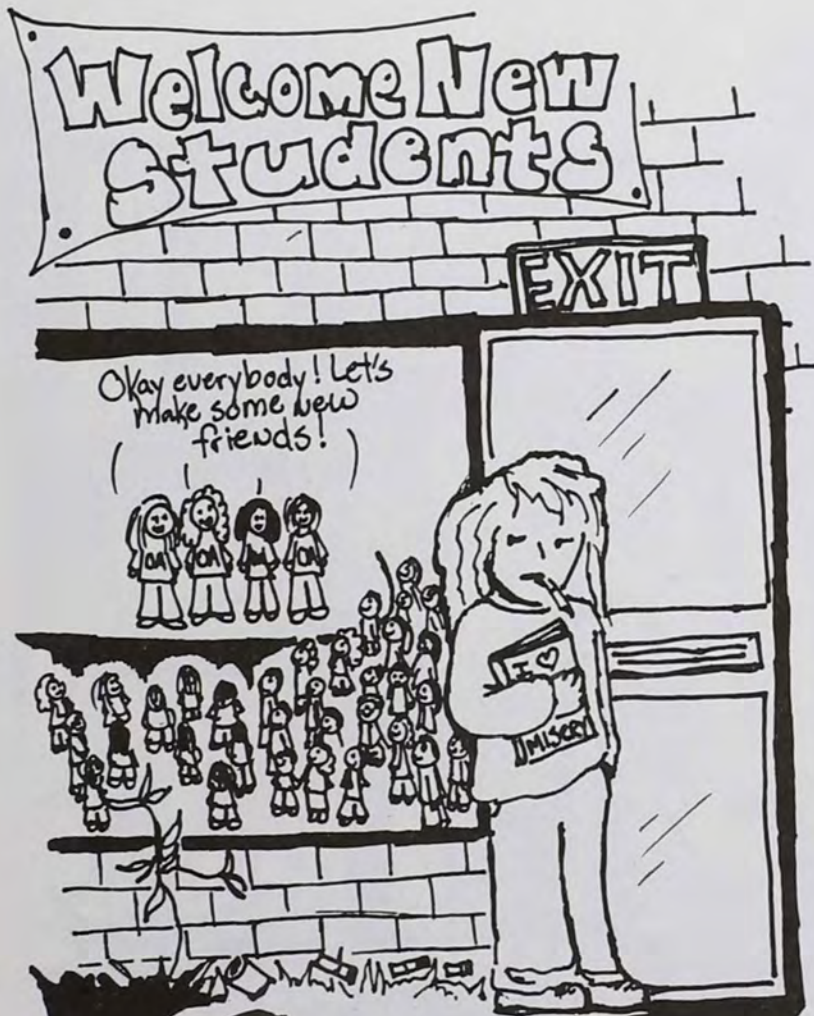 Welcome New
Students
EXIT
Okay everybody! Let's
make some new
friends!
OA
OA
OA
I ♡
MISERY